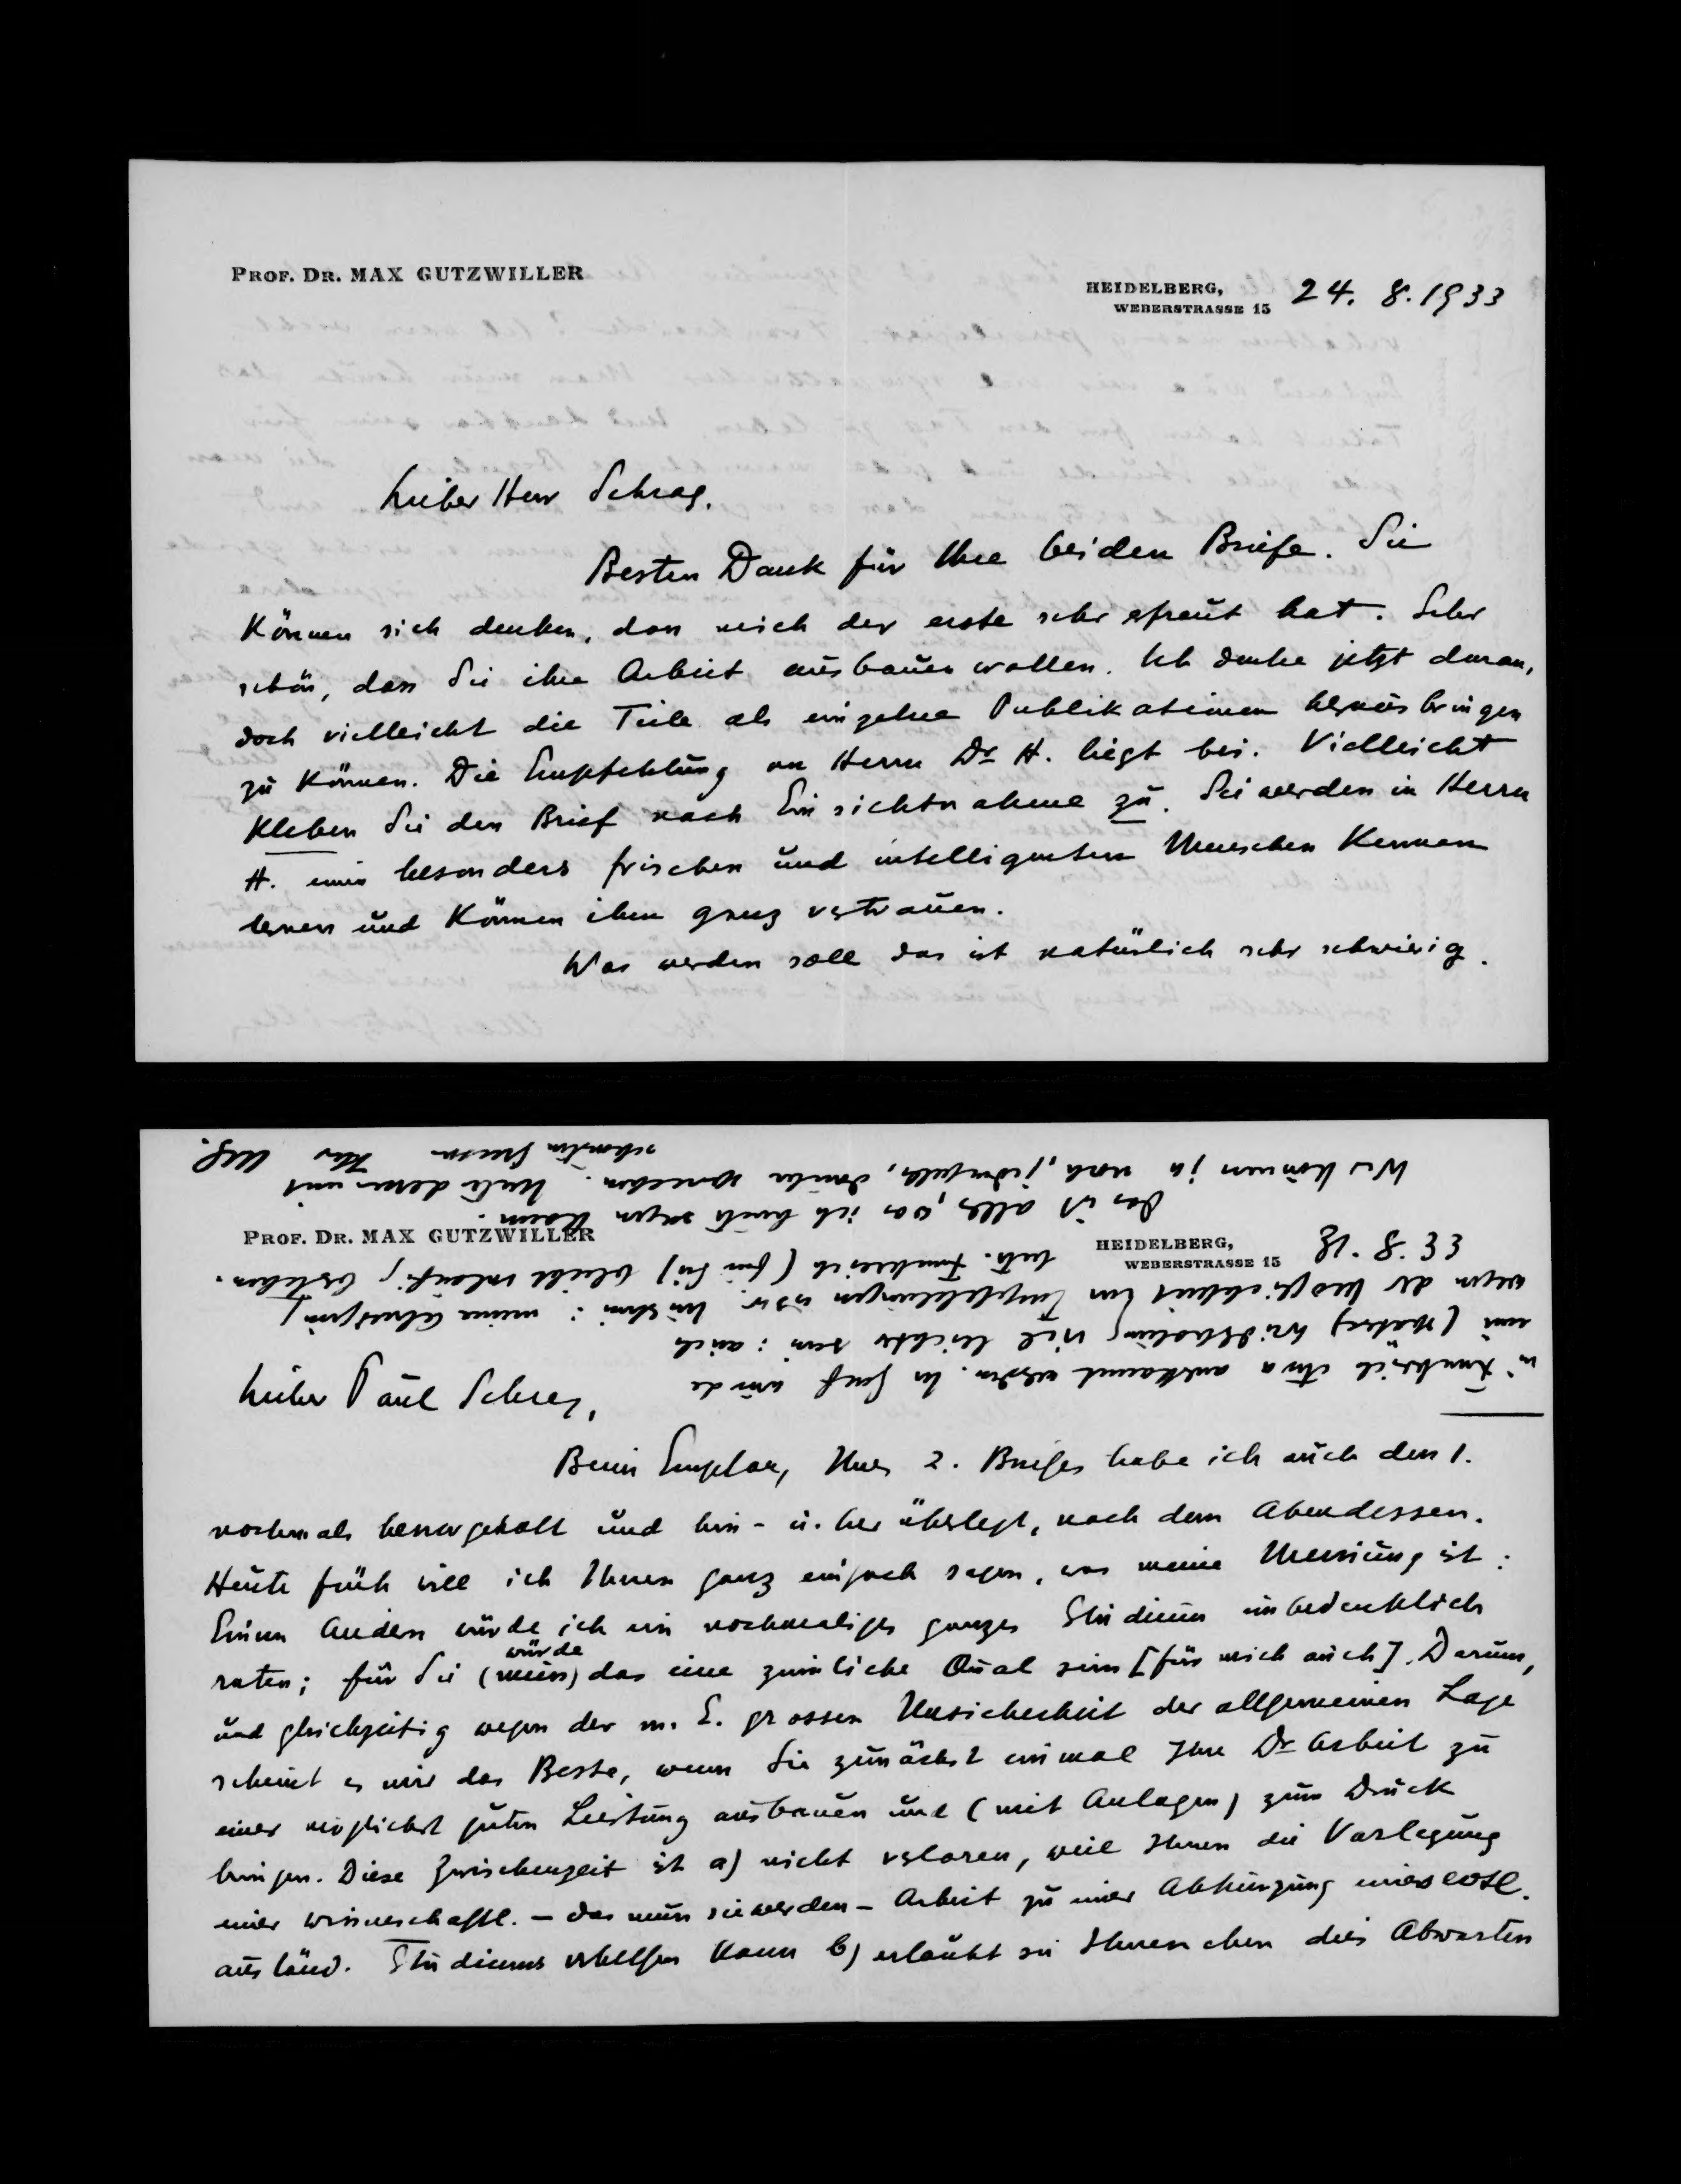 PROF. DR. MAX GUTZWILLER
HEIDELBERG,
WEBERSTRASSE 15
24. 8. 1933
Lieber Herr Schrag.
Besten Dank für Ihre beiden Briefe. Sie
können sich denken, dass mich der erste sehr erfreut hat. Sehr
schön, dass Sie ihre Arbeit ausbauen wollen. Ich denke jetzt daran,
doch vielleicht die Teile als einzelne Publikationen herausbringen
zu können. Die Empfehlung an Herrn Dr H. liegt bei. Vielleicht
kleben Sie den Brief nach Einsichtnahme zu. Sie werden in Herrn
H. einen besonders frischen und intelligenten Menschen kennen
lernen und können ihm ganz vertrauen.
Was werden soll das ist natürlich sehr schwierig.
PROF. DR. MAX GUTZWILLER
HEIDELBERG,
WEBERSTRASSE 15
8. 33
Lieber Paul Schrag,
Beim Empfang Ihres 2. Briefes habe ich auch den 1.
nochmals hervorgeholt und hin- u. her überlegt, nach dem Abendessen.
Heute früh will ich Ihnen ganz einfach sagen, was meine Meinung ist:
Einem Andern würde ich ein nochmaliges ganzes Studium unbedenklich
raten; für Sie würde das eine ziemliche Qual sein [für mich auch]. Darum,
und gleichzeitig wegen der m. E. grossen Unsicherheit der allgemeinen Lage
scheint es mir das Beste, wenn Sie zunächst einmal Ihre Dr Arbeit zu
einer möglichst guten Leistung ausbauen und (mit Anlagen) zum Druck
bringen. Diese Zwischenzeit ist a) nicht verloren, weil Ihnen die Vorlegung
einer wissenschaftl. – das muss sie werden – Arbeit zu einer Abkürzung eines evtl.
ausländ. Studiums verhelfen kann b) erlaubt sie Ihnen eben dies Abwarten
in Frankreich etwa anerkannt werden. In Genf würde
eine (spätere) viel leichter sein: auch
wegen der Möglichkeit von Empfehlungen usw.
Frankreich (für Sie) bleibt vorläufig bestehen.
Das ist alles, was ich heute sagen kann.
Wir können ja noch, jedenfalls, darüber sprechen. Unterdessen mit
schönsten Grüssen Ihr